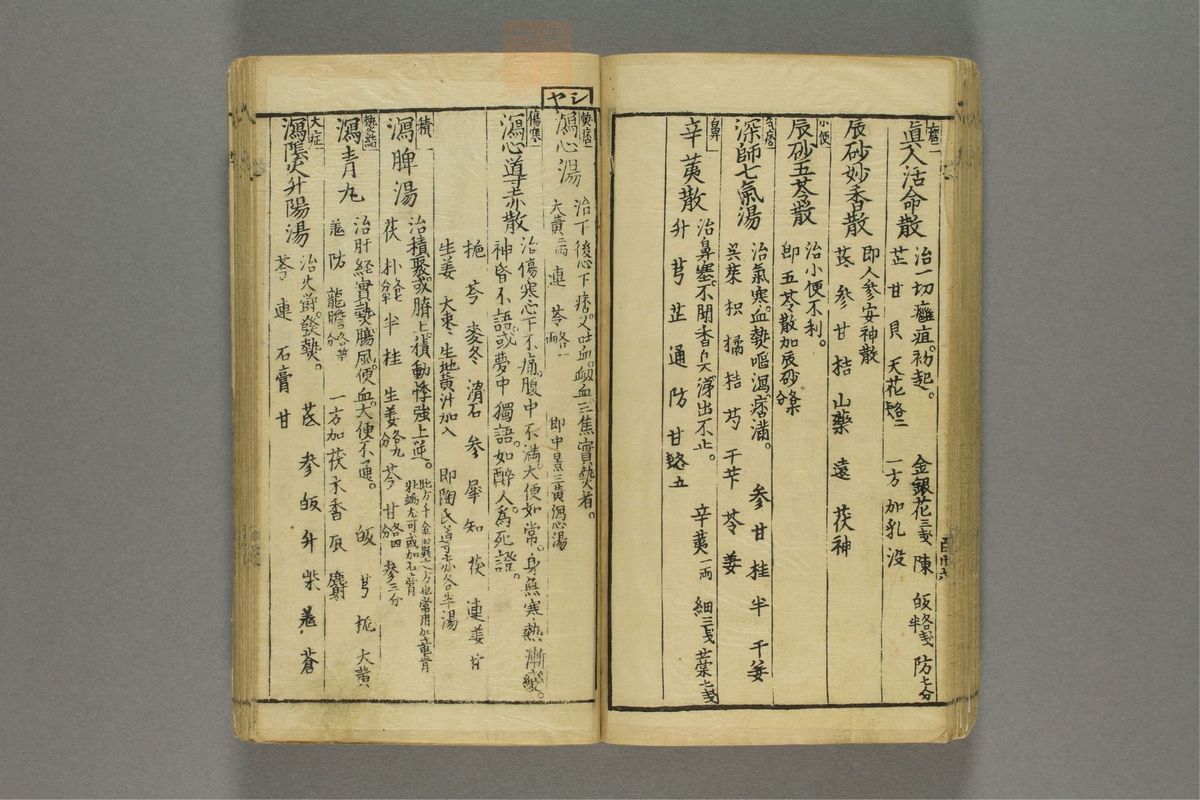 癰
眞人活命散
治一切癰疽初起。
金銀花三戔 陳 皈各戔半 防七分
芷 甘 貝 天花各二
一方加乳没
辰砂妙香散
即人参安神散
茋 参 甘 桔 山藥 遠 茯神
小便
辰砂五苓散
治小便不利。
即五苓散加辰砂
深師七氣湯
治氣寒血熱嘔瀉痞滿。
参 甘 桂 半 干姜
吴茱 枳 橘 桔 芍 干芐 苓 姜
鼻
辛荑散
治鼻塞。不聞香臭涕出不止。
辛荑一兩 細三戔
升 芎 芷 通 防 甘
シヤ
瀉心湯
治下後心下痞。又吐血。衂血。三焦實熱者。
大黄二兩 連 芩各一兩
即中景三黄瀉心湯
傷寒
瀉心導赤散
治傷寒心下不痛。腹中不満。大便如常。身無寒熱漸變。
神昏不語。或夢中獨語。如醉人。爲死證。
梔 芩 麥冬 滑石 参 犀 知 茯 連 姜 甘
生姜 大棗 生地黄汁加入
即陶氏導赤各半湯
積
瀉脾湯
治積聚或臍上積動悸強上逆。
茯 朴 半 桂 生姜 芩 甘各四分 参三分
瀉青丸
治肝経實熱腸風。便血。大便不通。
皈 芎 梔 大黄
羌 防 龍膽各等分
一方加茯 木香 辰 麝
大症
瀉陰火升陽湯
治火欝。發熱。
茋 参 皈 升 柴 羌 蒼
芩 連 石膏 甘